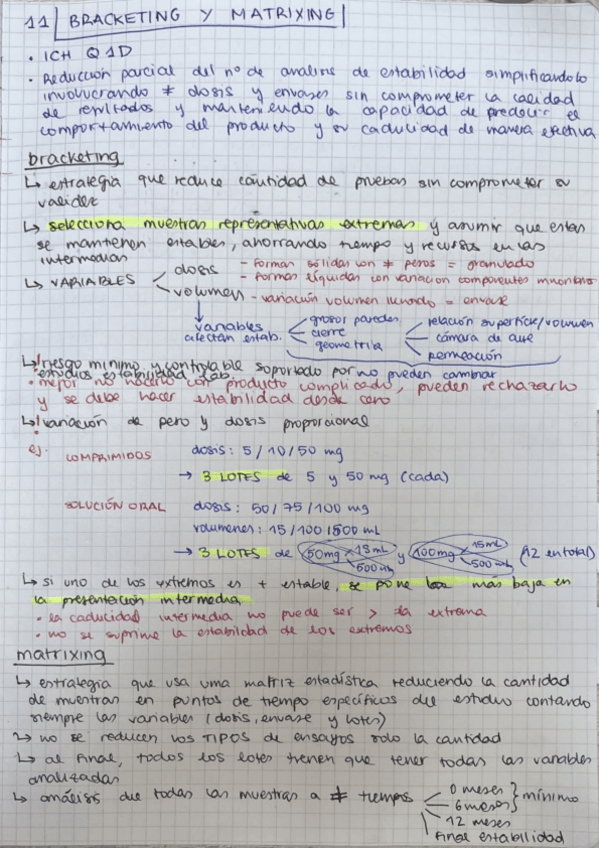 11 BRACKETING Y MATRIXING
• ICH Q1D
• Reducción parcial del nº de análisis de estabilidad simplificándolo
involucrando ≠ dosis y envases sin comprometer la calidad
de resultados y manteniendo la capacidad de predecir el
comportamiento del producto y su caducidad de manera efectiva
bracketing
↳ estrategia que reduce cantidad de pruebas sin comprometer su
validez
↳ selecciona muestras representativas extremas y asumir que estas
se mantienen estables, ahorrando tiempo y recursos en las
intermedias
↳ VARIABLES
dosis - formas sólidas con ≠ pesos = granulado
- formas líquidas con variación componentes minoritarios
volumen - variación volumen llenado = envase
↓
variables afectan estab.
grosor paredes
cierre
geometría
relación superficie/volumen
cámara de aire
permeación
no pueden cambiar
↳ ! riesgo mínimo y controlable soportado por
estudios estabilidad
• mejor no hacerlo con producto complicado, pueden rechazarlo
y se debe hacer estabilidad desde cero
↳ ! variación de peso y dosis proporcional
ej. COMPRIMIDOS dosis: 5/10/50 mg
→ 3 LOTES de 5 y 50 mg (cada)
SOLUCIÓN ORAL dosis: 50/75/100 mg
volumenes: 15/100/500 mL
→ 3 LOTES de 50mg x 15mL 500mL y 100mg x 15mL 500mL (12 en total)
↳ si uno de los extremos es + estable, se pone más baja en
la presentación intermedia
• la caducidad intermedia no puede ser > la extrema
• no se suprime la estabilidad de los extremos
matrixing
↳ estrategia que usa una matriz estadística reduciendo la cantidad
de muestras en puntos de tiempo específicos del estudio contando
siempre las variables (dosis, envase y lotes)
↳ no se reducen los TIPOS de ensayos solo la cantidad
↳ al final, todos los lotes tienen que tener todas las variables
analizadas
↳ análisis de todas las muestras a ≠ tiempos
0 meses
6 meses
} mínimo
12 meses
final estabilidad